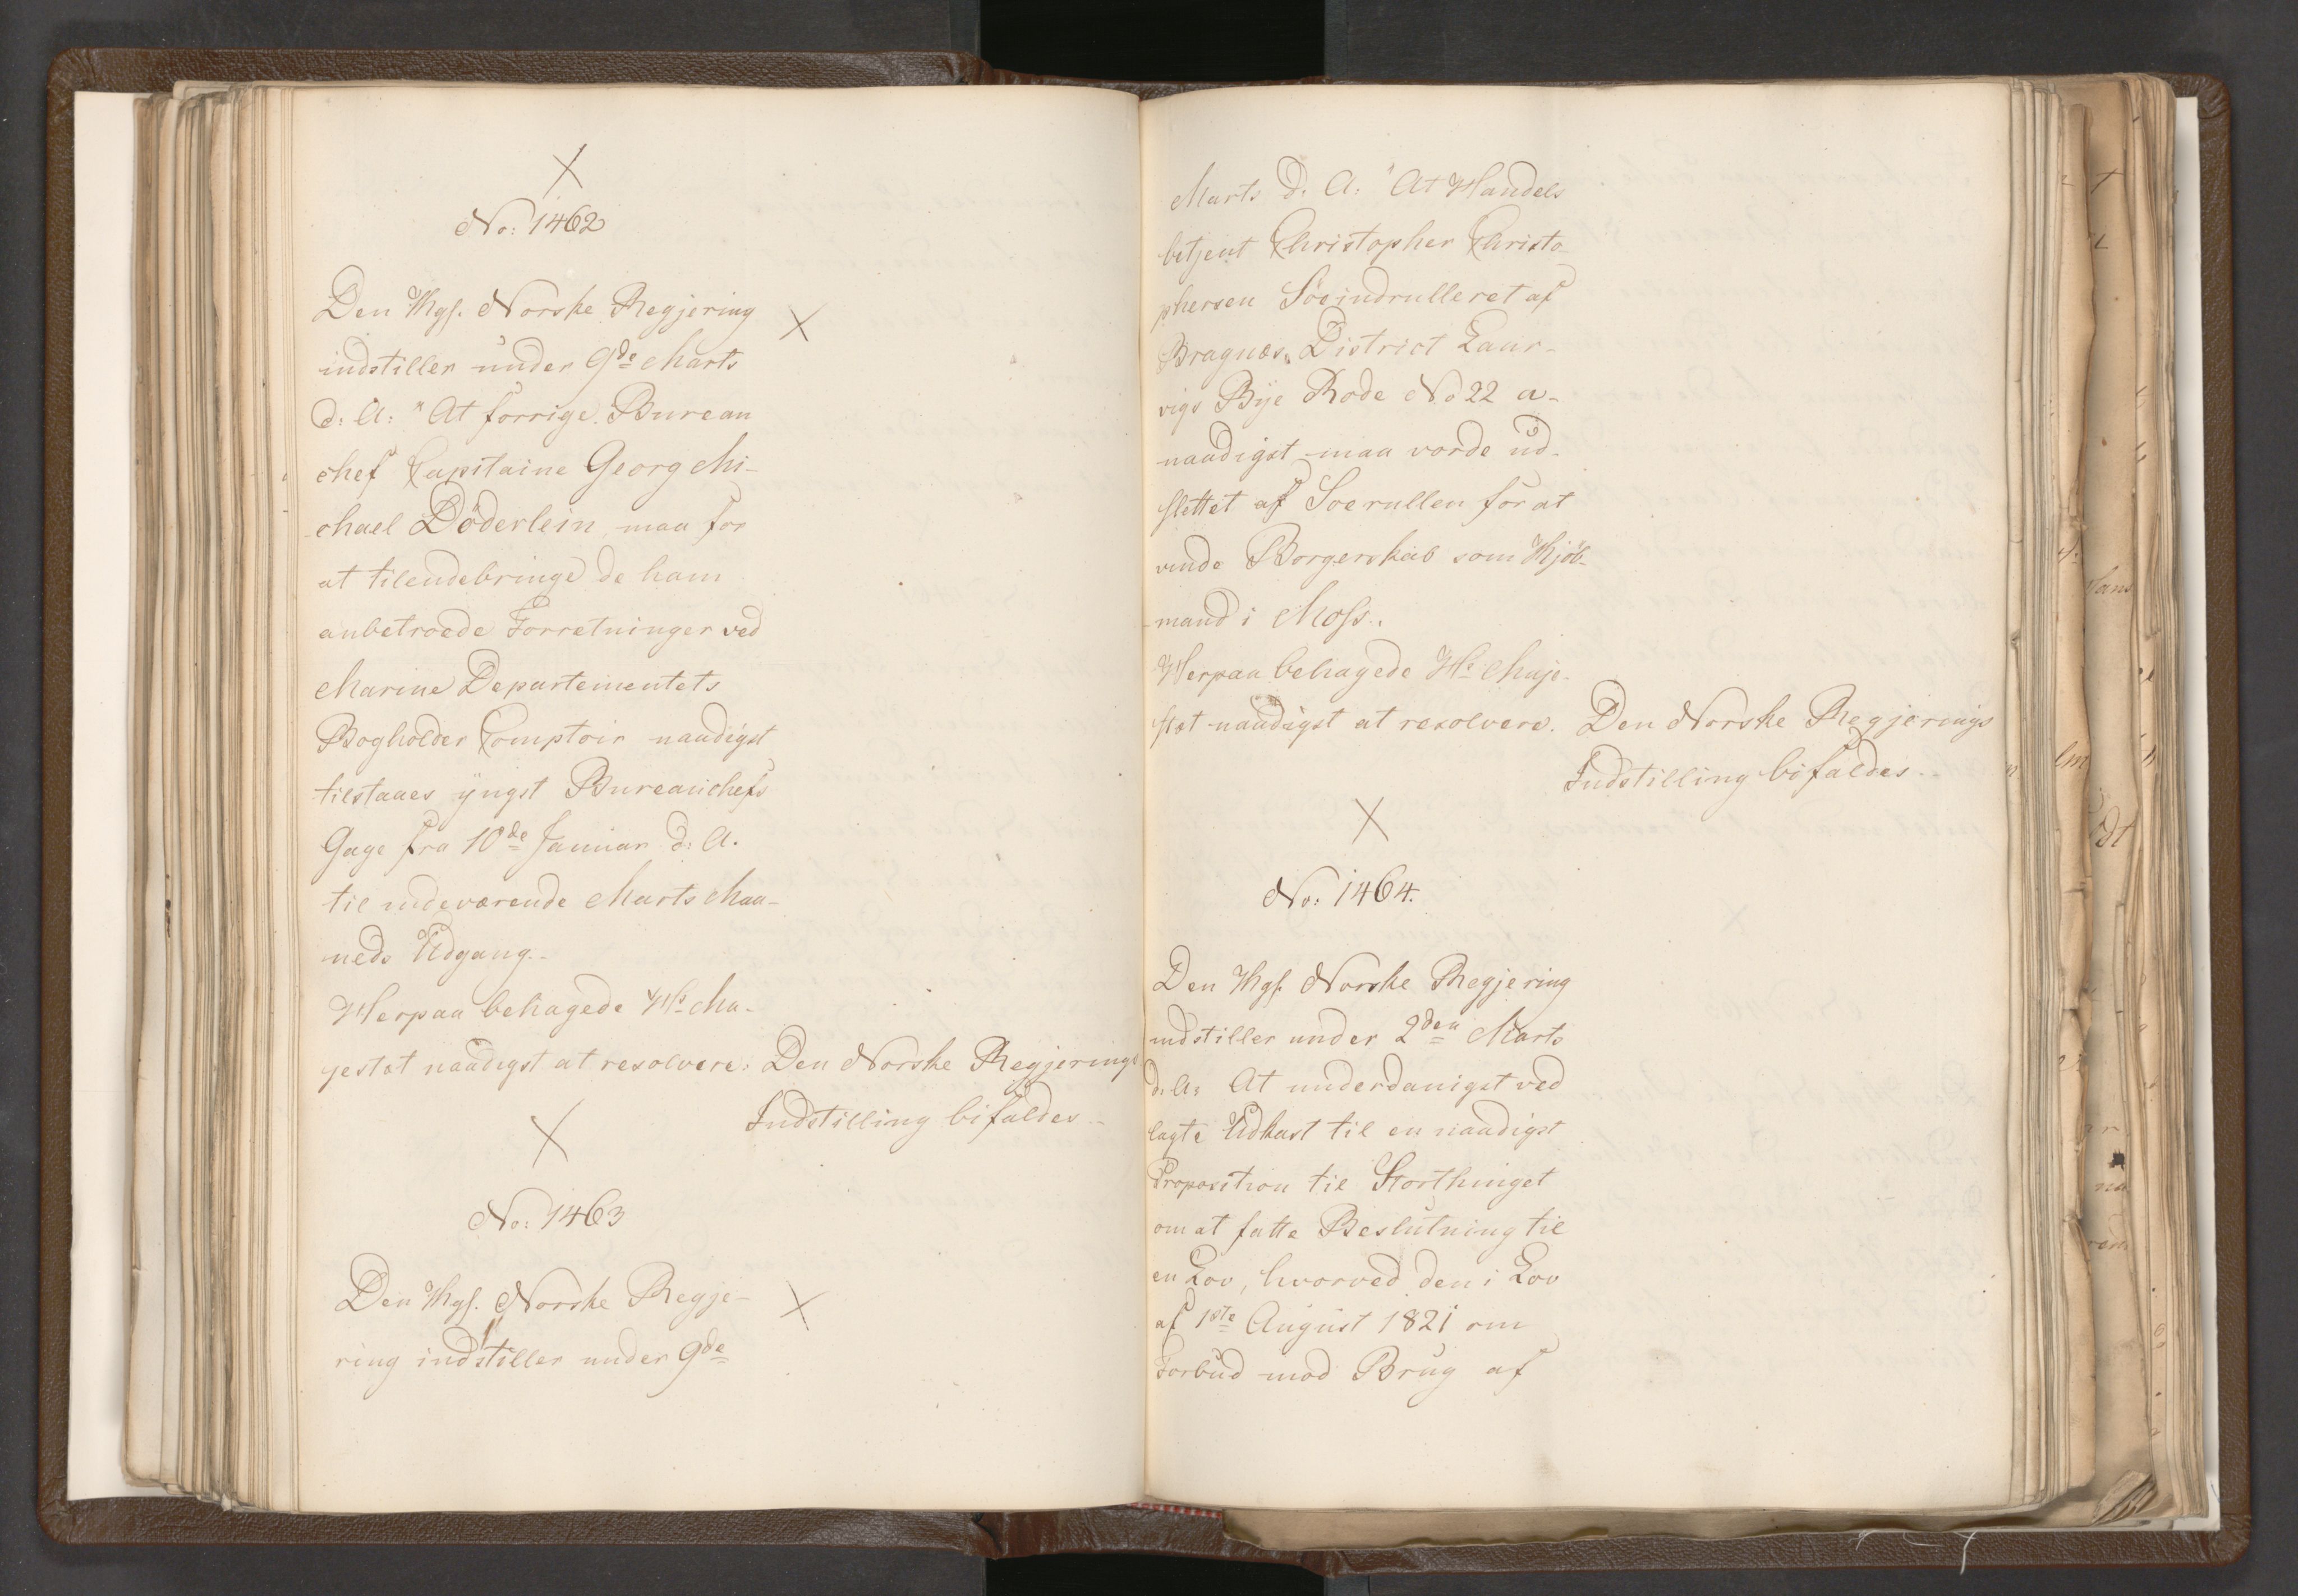 No: 1462
Den Kgl. Norske Regjering
indstiller under 9de Marts
d: A: "At forrige Bureau
chef Capitaine Georg Mi-
chael Döderlein, maa for
at tilendebringe de ham
anbetroede Forretninger ved
Marine Departementets
Bogholder Comptoir naadigst
tilstaaes yngst Bureauchefs
Gage fra 10de Januar d: A.
til indeværende Marts Maa-
neds Udgang.-
Herpaa behagede Hs Ma-
jestæt naadigst at resolvere: Den Norske Regjerings
Indstilling bifaldes.-
No: 1463
Den Kgl. Norske Regje-
ring indstiller under 9de
Marts d. A: "At Handels
betjent Christopher Christo-
phersen Söeindrulleret af
Bragnæs District Laur-
vigs Bye Rode No 22 a-
naadigst maa vorde ud-
slettet af Soerullen for at
vinde Borgerskab som Kjöb-
mand i Moss.
Herpaa behagede Hs Maje-
stæt naadigst at resolvere. Den Norske Regjerings
Indstilling bifaldes.-
No: 1464.
Den Kgl. Norske Regjering
indstiller under 2den Marts
d. A: At underdanigst ved
lagte Udkast til en naadigst
Proposition til Storthinget
om at fatte Beslutning til
en Lov, hvorved den i Lov
af 1ste August 1821 om
Forbud mod Brug af